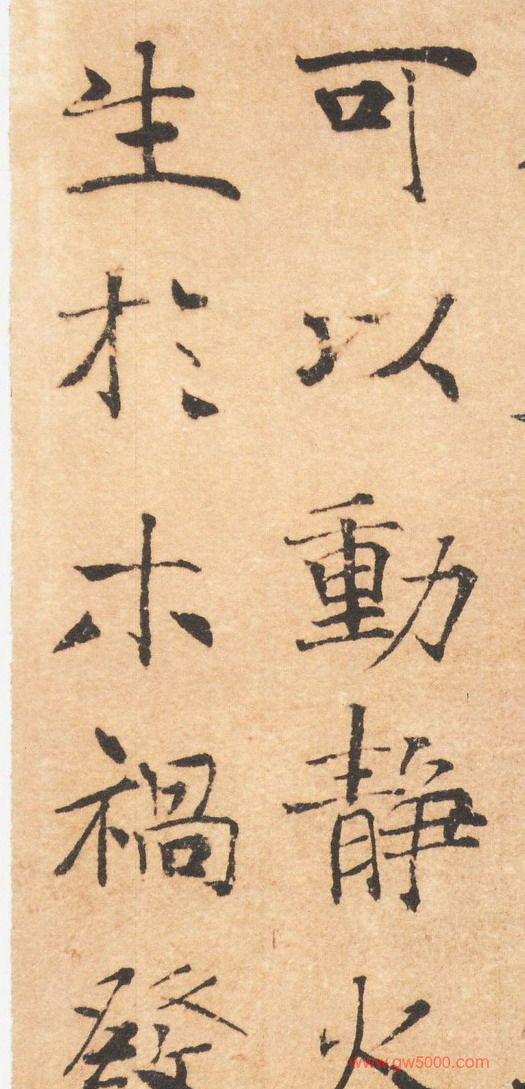 可以動静火
生於木禍發
www.gw5000.com